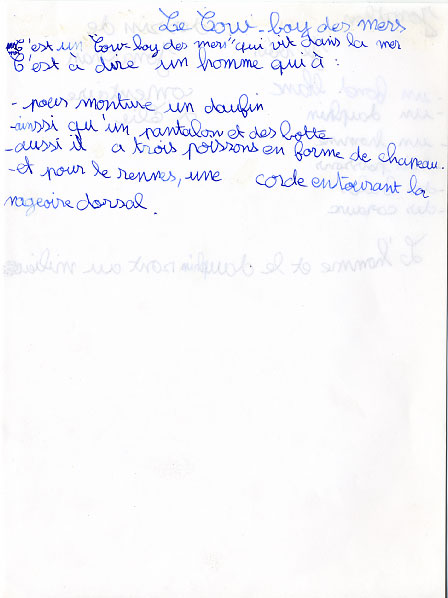 Le Cow-boy des mers
C'est un "Cow-boy des mers" qui vit dans la mer
C'est à dire un homme qui à :
- pour monture un daufin
- ainssi qu'un pantalon et des botte
- aussi il a trois poissons en forme de chapeau.
- et pour le rennes, une corde entourant la
nageoire dorsal.
L'homme et le daufin sont au milieu